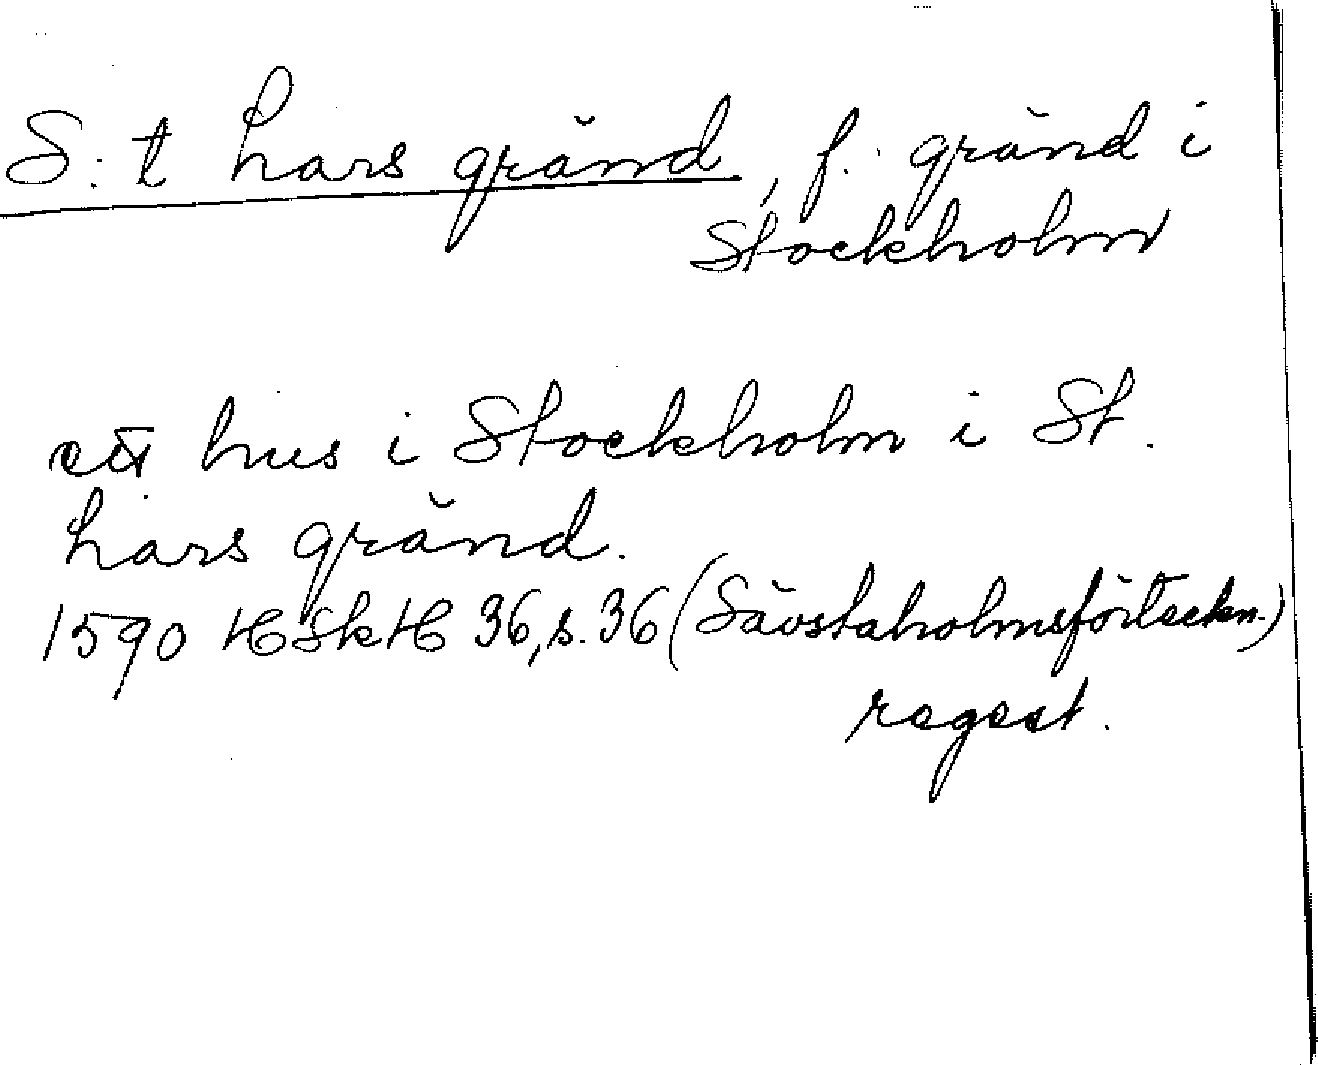 S:t Lars gränd, f. gränd i
Stockholm
ett hus i Stockholm i St.
Lars gränd.
1590 HSkH 36, s. 36 (Sävstaholmsförteckn.)
regest.